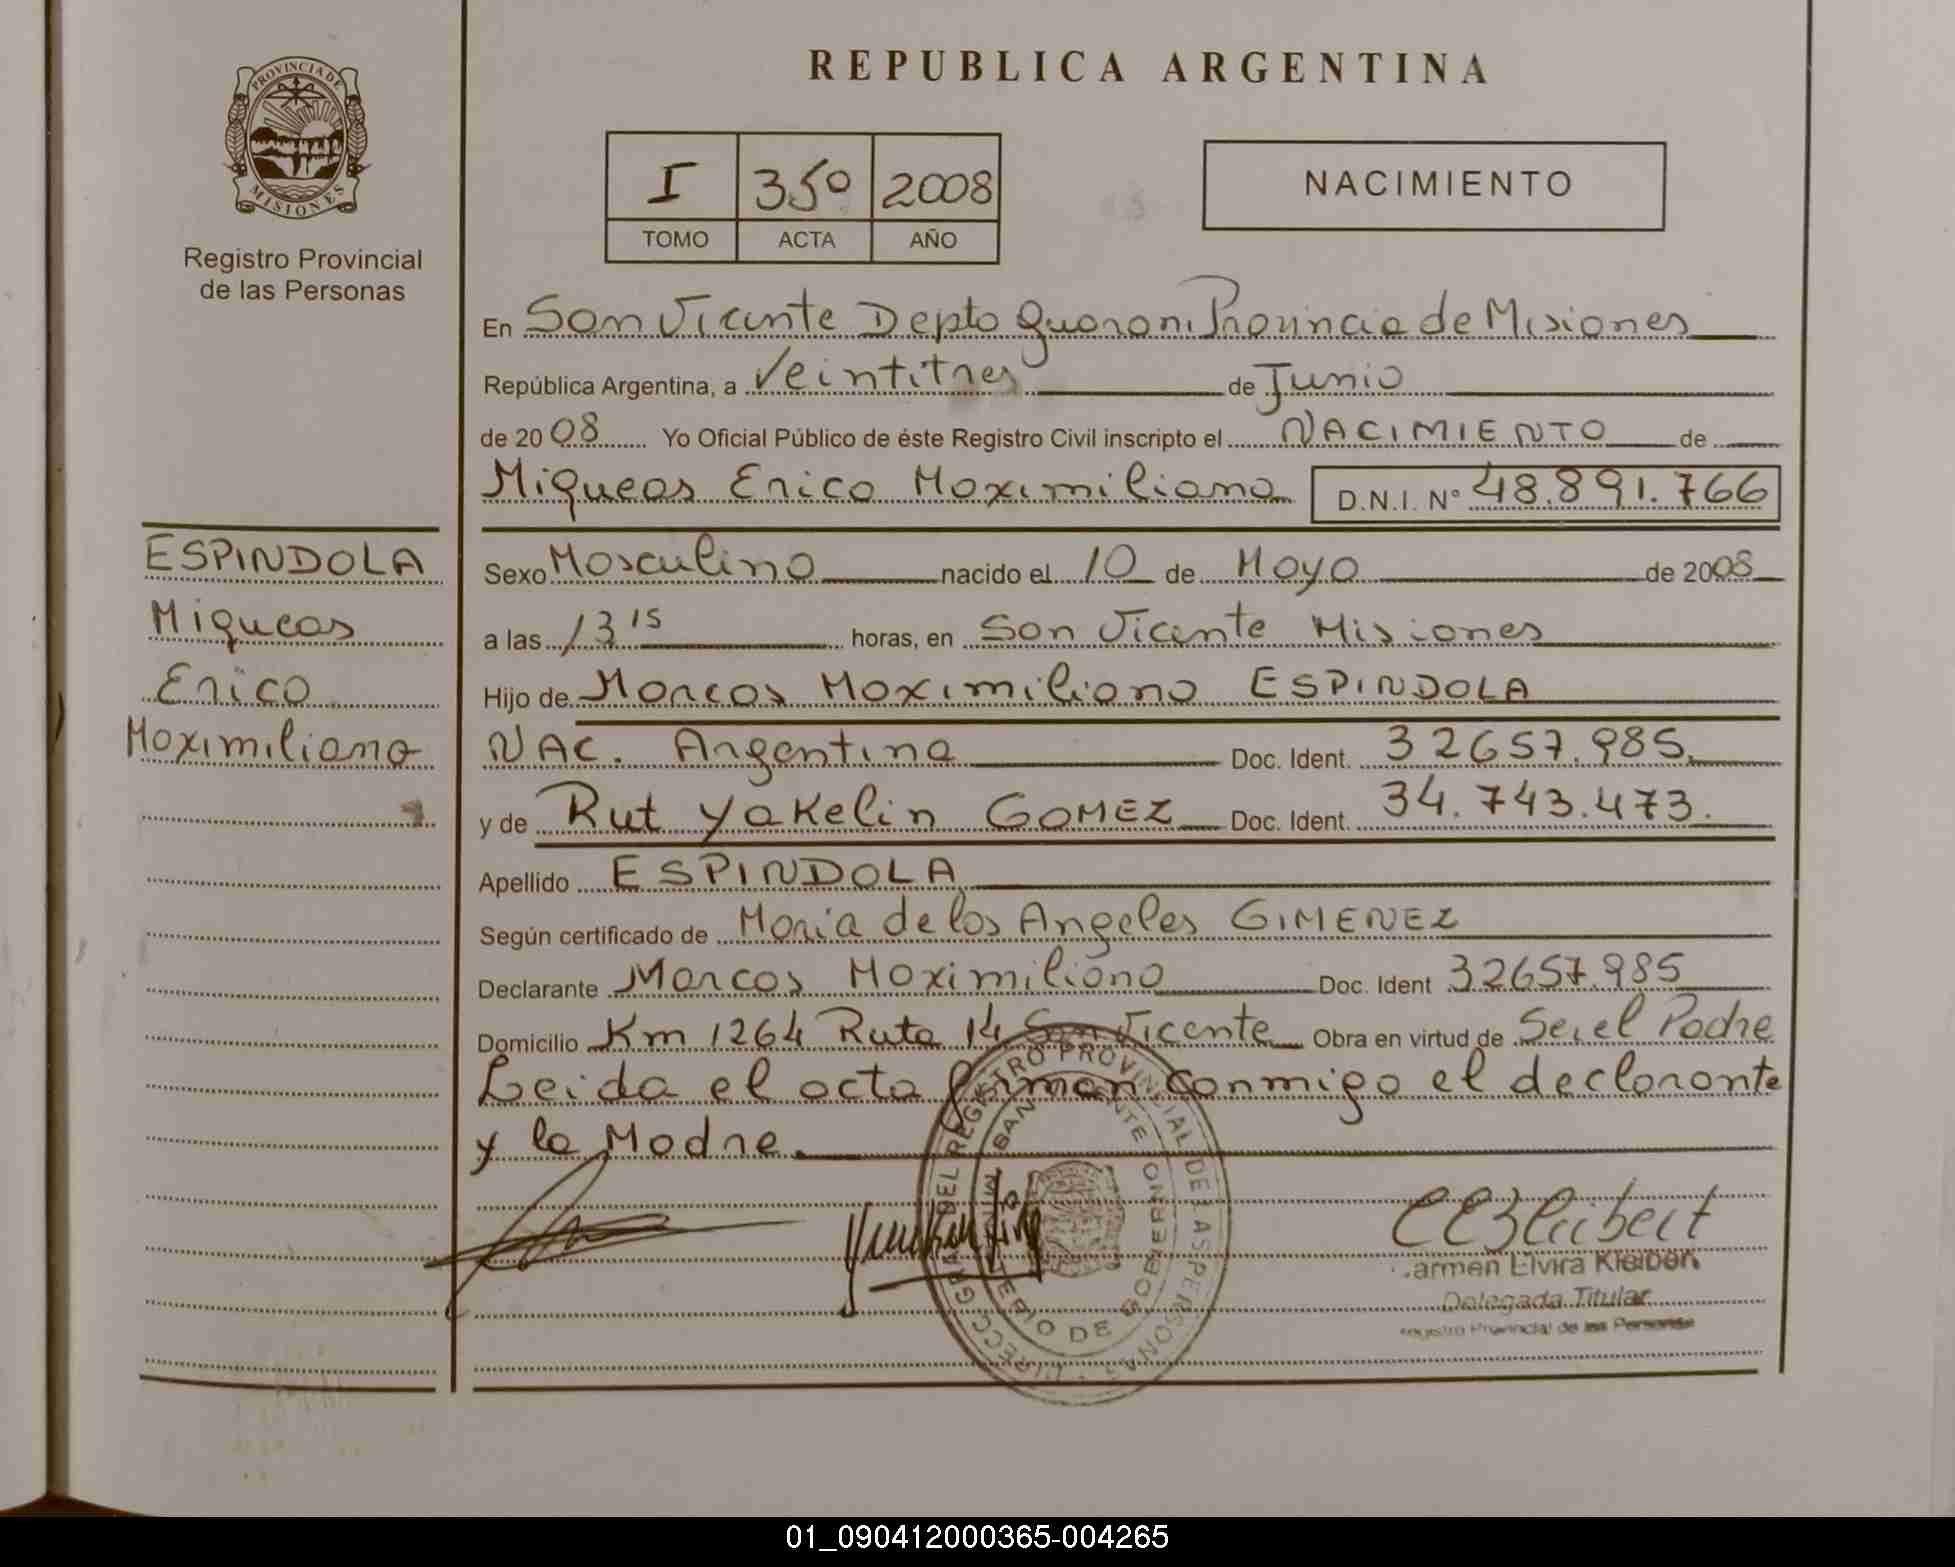 PROVINCIA DE
MISIONES
Registro Provincial
de las Personas
REPUBLICA ARGENTINA
I 350 2008
TOMO ACTA AÑO
NACIMIENTO
En San Vicente Depto Guarani Provincia de Misiones
República Argentina, a Veintitres de Junio
de 2008 Yo Oficial Público de éste Registro Civil inscripto el NACIMIENTO de
Miqueas Erico Maximiliano D.N.I. Nº 48.891.766
ESPINDOLA
Miqueas
Erico
Maximiliano
Sexo Masculino nacido el 10 de Mayo de 2008
a las 13 15 horas, en San Vicente Misiones
Hijo de Marcos Maximiliano ESPINDOLA
NAC. Argentina Doc. Ident. 32657.985.
y de Rut Yakelin GOMEZ Doc. Ident. 34.743.473.
Apellido ESPINDOLA
Según certificado de Maria de los Angeles GIMENEZ
Declarante Marcos Maximiliano Doc. Ident 32657.985
Domicilio Km 1264 Ruta 14 San Vicente Obra en virtud de Ser el Padre
Leida el acta firman conmigo el declarante
y la Madre.
REGISTRO PROVINCIAL DE LAS PERSONAS
DE GOBIERNO
armen Elvira Kleibert
Delegada Titular
Registro Provincial de las Personas
01_090412000365-004265